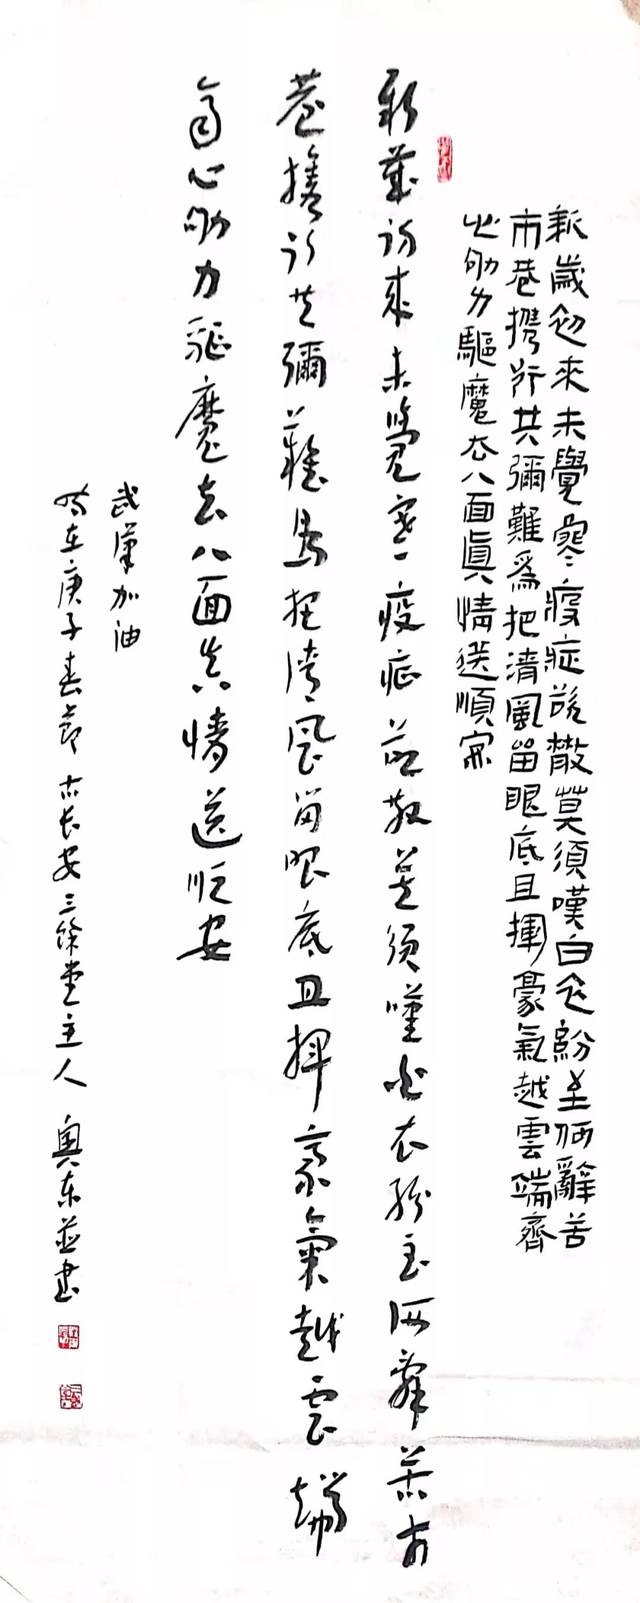 新歲初來未覺寒疫症欲散莫須嘆白衣紛至何辭苦
市巷攜行共彌難為把清風留眼底且揮豪氣越雲端齊
心勠力驅魔去八面真情送順安
新歲初來未覺寒疫症欲散莫須嘆白衣紛至何辭苦市
巷攜行共彌難為把清風留眼底且揮豪氣越雲端
齊心勠力驅魔去八面真情送順安
武漢加油
時在庚子春節於長安三緣堂主人奧東並書